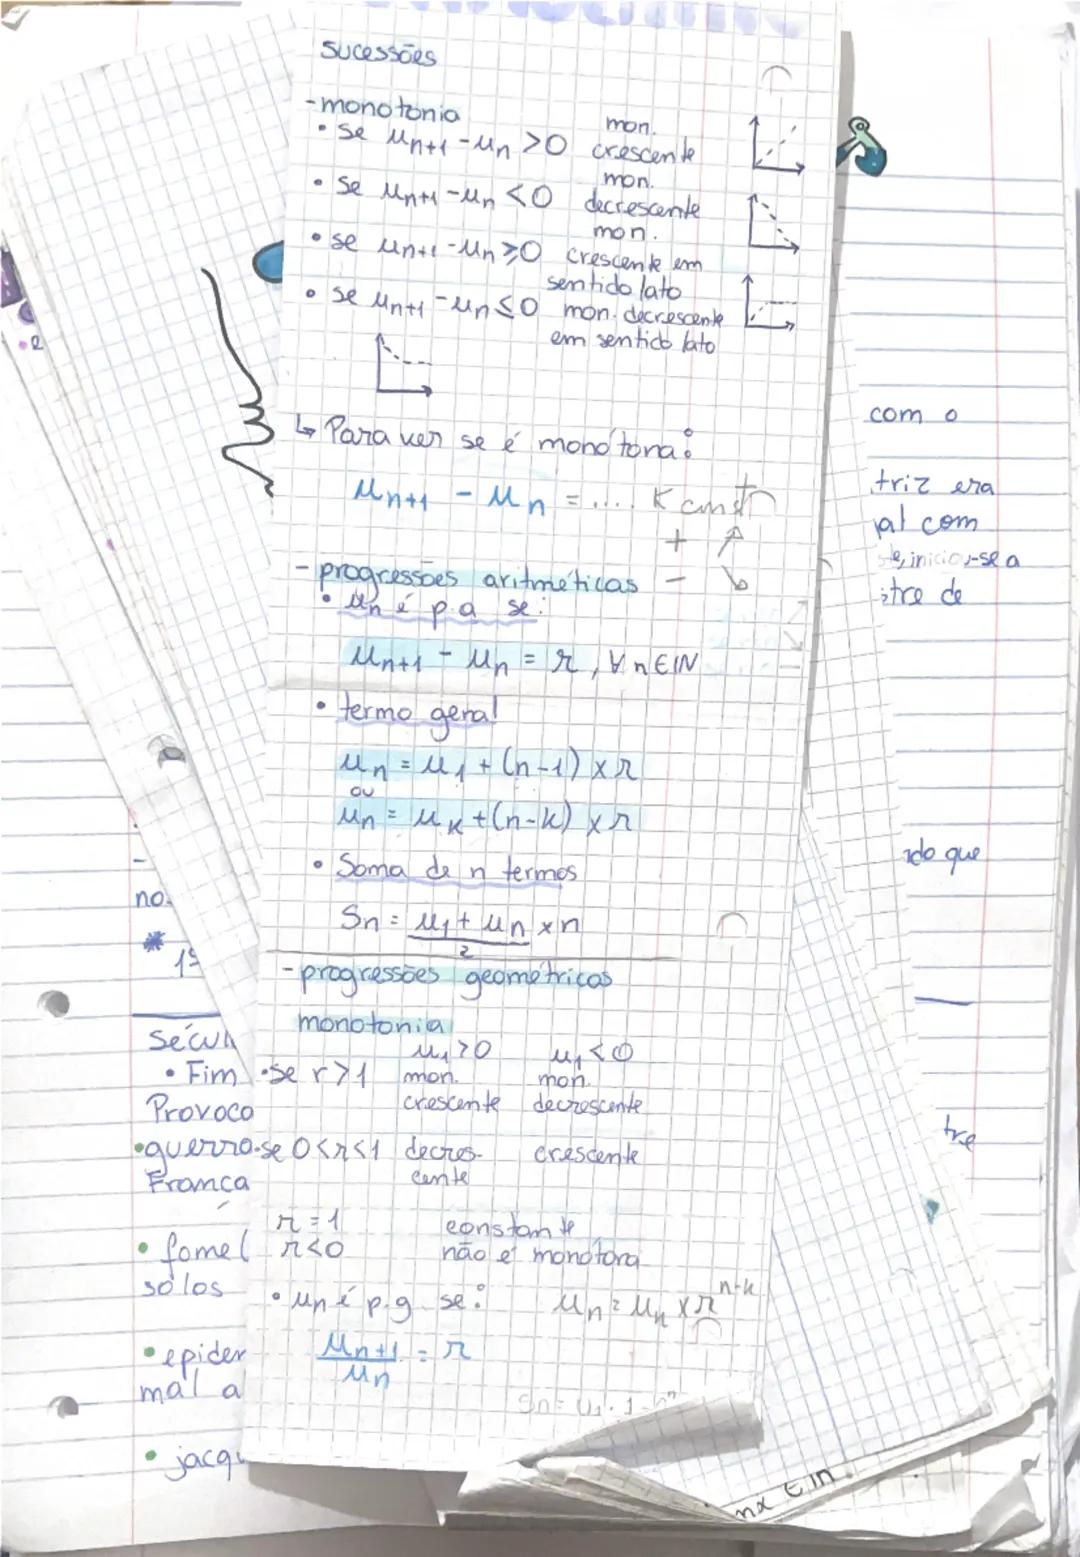 sucessões
-monotonia
• se un+1 - un > 0 mon. crescente
• se un+1 - un < 0 mon. decrescente
• se un+1 - un ≥ 0 mon. crescente em sentido lato
• se un+1 - un ≤ 0 mon. decrescente em sentido lato
↳ Para ver se é monótona:
un+1 - un = .... K const
+ ↗
- ↘
- progressões aritméticas
• un é p.a se:
un+1 - un = r, ∀ n ∈ IN
• termo geral
un = u1 + (n-1) × r
ou
un = uk + (n-k) × r
• Soma de n termos
Sn = (u1 + un)/2 × n
- progressões geométricas
monotonia
u1 > 0 u1 < 0
• se r > 1 mon. crescente mon. decrescente
• se 0 < r < 1 decres- cente crescente
r = 1 constante
r < 0 não é monótona
• un é p.g se: un = uk × r^n-k
un+1/un = r
Sn = u1 . 1-r^n
com o
triz era
al com
iniciou-se a
tre de
do que
tre
no.
*
Fim
Provoco
• guerra
França
• fome
solos
• epider
mal a
• jacqu
nx ∈ IN